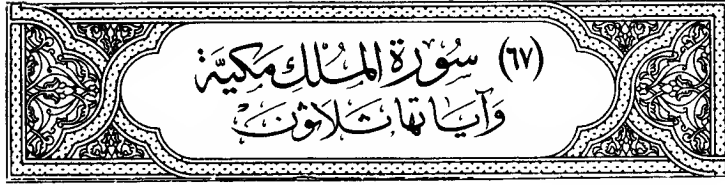 (٦٧) سُورَةُ المُلْكِ مَكِيَّة
وَآيَاتهَا ثَلَاثُونَ